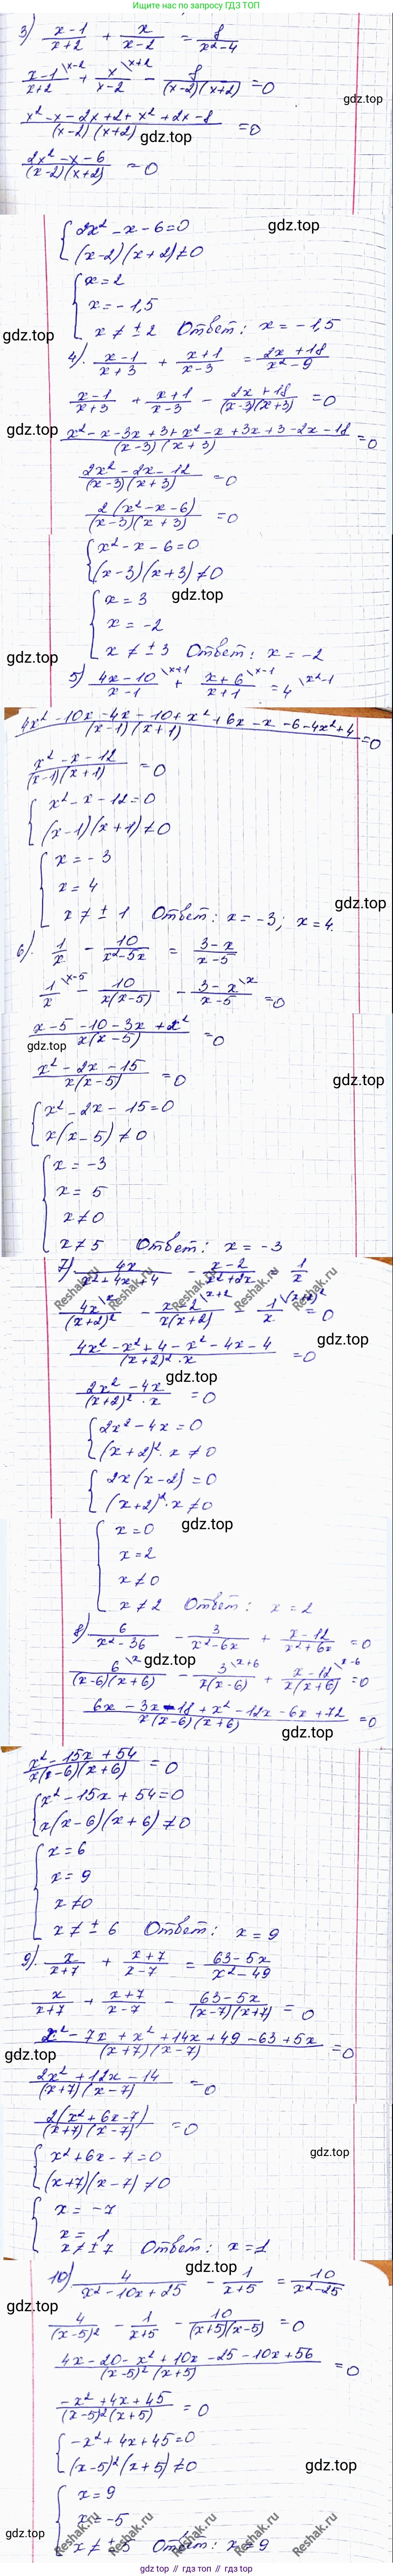 Ищите нас по запросу ГДЗ ТОП
3) (x-1)/(x+2) + x/(x-2) = 8/(x²-4)
(x-1)\x-2/(x+2) + x\x+2/(x-2) - 8/((x-2)(x+2)) = 0
gdz.top
(x²-x-2x+2+x²+2x-8)/((x-2)(x+2)) = 0
gdz.top
(2x²-x-6)/((x-2)(x+2)) = 0
{2x²-x-6=0
gdz.top
(x-2)(x+2)≠0
{x=2
x=-1,5
x≠±2 Ответ: x=-1,5
gdz.top
4). (x-1)/(x+3) + (x+1)/(x-3) = (2x+18)/(x²-9)
(x-1)/(x+3) + (x+1)/(x-3) - (2x+18)/((x-3)(x+3)) = 0
gdz.top
(x²-x-3x+3+x²-x+3x+3-2x-18)/((x-3)(x+3)) = 0
(2x²-2x-12)/((x-3)(x+3)) = 0
2(x²-x-6)/((x-3)(x+3)) = 0
{x²-x-6=0
(x-3)(x+3)≠0
{x=3
gdz.top
x=-2
x≠±3 Ответ: x=-2
gdz.top
5) (4x-10)\x+1/(x-1) + (x+6)\x-1/(x+1) = 4\x²-1
(4x²-10x-4x-10+x²+6x-x-6-4x²+4)/((x-1)(x+1)) = 0
(x²-x-12)/((x-1)(x+1)) = 0
{x²-x-12=0
(x-1)(x+1)≠0
{x=-3
x=4
gdz.top
x≠±1 Ответ: x=-3; x=4.
6). 1/x - 10/(x²-5x) = (3-x)/(x-5)
1\x-5/x - 10/(x(x-5)) - (3-x)\x/(x-5) = 0
(x-5-10-3x+x²)/(x(x-5)) = 0
gdz.top
(x²-2x-15)/(x(x-5)) = 0
gdz.top
{x²-2x-15=0
x(x-5)≠0
{x=-3
x=5
x≠0
x≠5 Ответ: x=-3
7) 4x/(x²+4x+4) - (x-2)/(x²+2x) 1/x
Reshak.ru Reshak.ru Reshak.ru Reshak.ru
4x\x/(x+2)² - (x-2)\x+2/(x(x+2)) - 1\(x+2)²/x = 0
gdz.top
(4x²-x²+4-x²-4x-4)/((x+2)²·x) = 0
gdz.top
(2x²-4x)/((x+2)²·x) = 0
{2x²-4x=0
(x+2)²·x≠0
{2x(x-2)=0
(x+2)²·x≠0
{x=0
gdz.top
x=2
x≠0
x≠2 Ответ: x=2
8) 6/(x²-36) - 3/(x²-6x) + (x-12)/(x²+6x) = 0
gdz.top
6\x/((x-6)(x+6)) - 3\x+6/(x(x-6)) + (x-12)\x-6/(x(x+6)) = 0
(6x-3x-18+x²-12x-6x+72)/(x(x-6)(x+6)) = 0
gdz.top
(x²-15x+54)/(x(x-6)(x+6)) = 0
{x²-15x+54=0
x(x-6)(x+6)≠0
{x=6
x=9
x≠0
x≠±6 Ответ: x=9
9). x/(x+7) + (x+7)/(x-7) = (63-5x)/(x²-49)
x/(x+7) + (x+7)/(x-7) - (63-5x)/((x-7)(x+7)) = 0
(x²-7x+x²+14x+49-63+5x)/((x+7)(x-7)) = 0
gdz.top
(2x²+12x-14)/((x+7)(x-7)) = 0
2(x²+6x-7)/((x+7)(x-7)) = 0
gdz.top
{x²+6x-7=0
(x+7)(x-7)≠0
{x=-7
x=1
x≠±7 Ответ: x=1
gdz.top
10) 4/(x²-10x+25) - 1/(x+5) = 10/(x²-25)
gdz.top
4/(x-5)² - 1/(x+5) - 10/((x+5)(x-5)) = 0
(4x-20-x²+10x-25-10x+56)/((x-5)²(x+5)) = 0
(-x²+4x+45)/((x-5)²(x+5)) = 0
{-x²+4x+45=0
(x-5)²(x+5)≠0
gdz.top
{x=9
x=-5
x≠±5 Ответ: x=9
gdz.top
Reshak.ru Reshak.ru Reshak.ru Reshak.ru
gdz.top // гдз топ // gdz.top